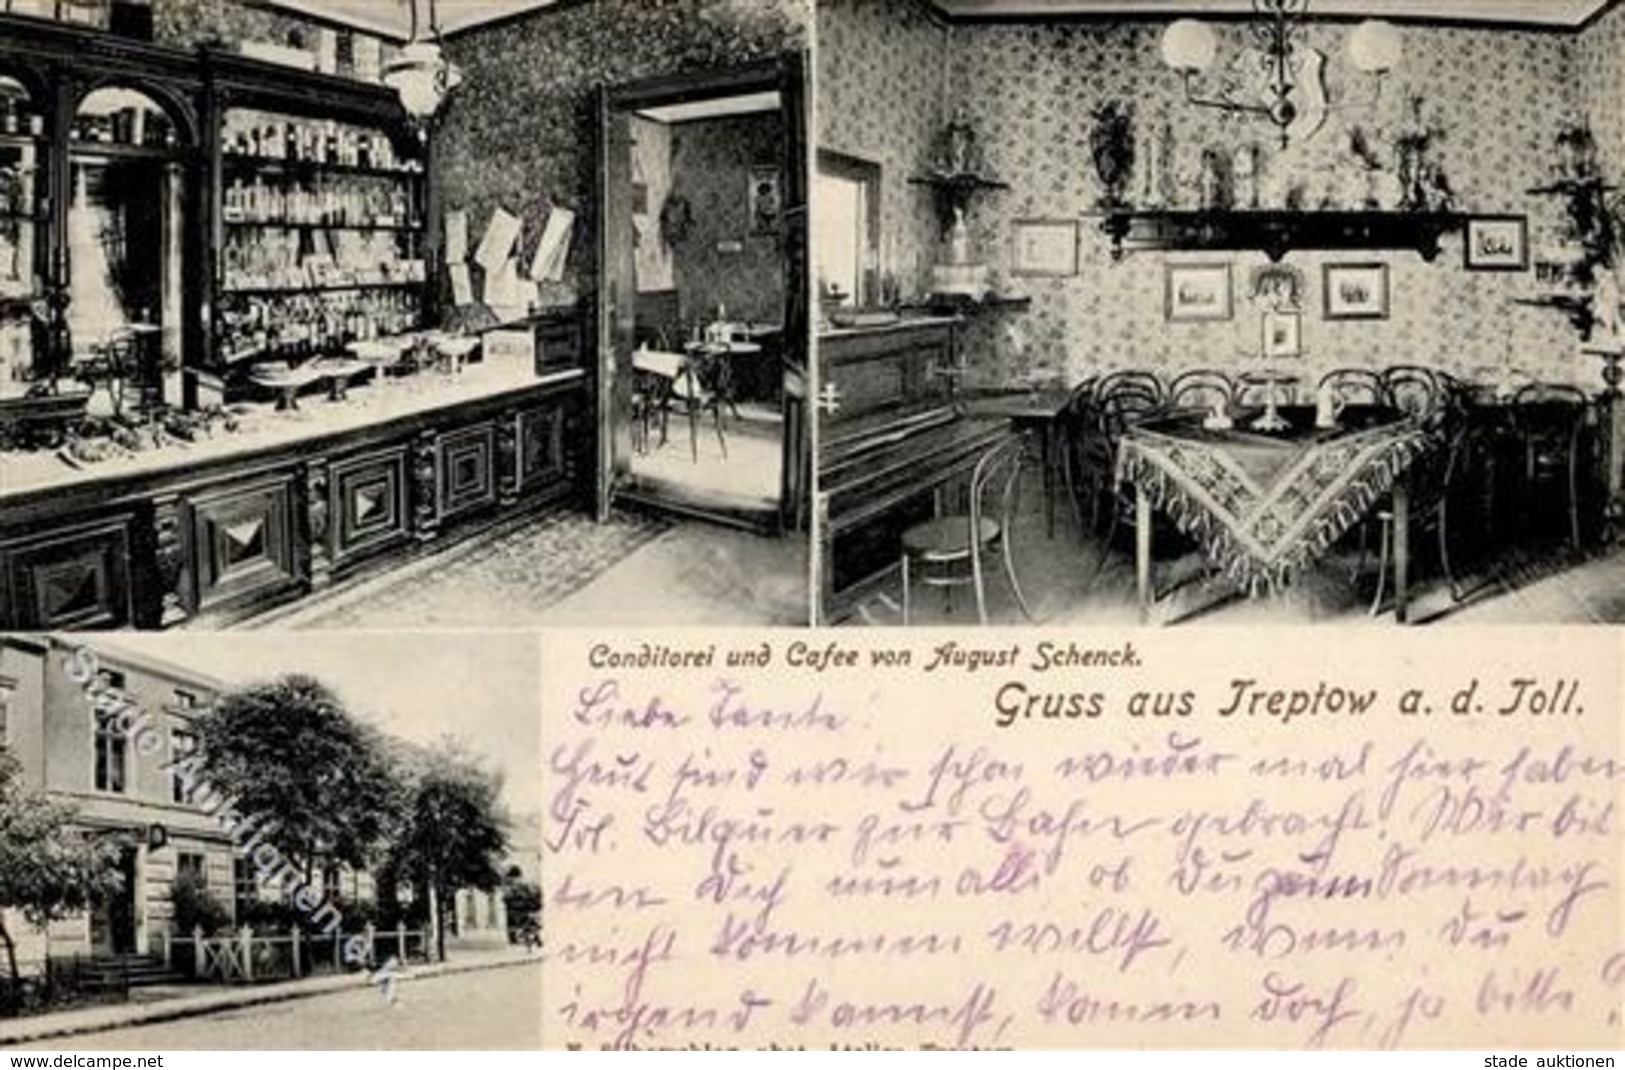 Conditorei und Cafee von August Schenck.
Gruss aus Treptow a. d. Toll.
Liebe Tante!
Heut sind wir schon wieder mal hier haben
Frl. Bilguer zur Bahn gebracht. Wir bit
ten Dich nun alle ob Du zum Sonntag
nicht kommen willst, wenn Du
irgend kannst, komm doch, ja bitte!
phot. Atelier Treptow
Stade Auktionen
www.delcampe.net
stade auktionen